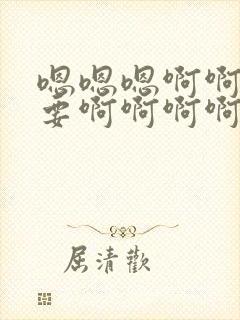 嗯嗯嗯啊啊
要啊啊啊啊
屈清歡